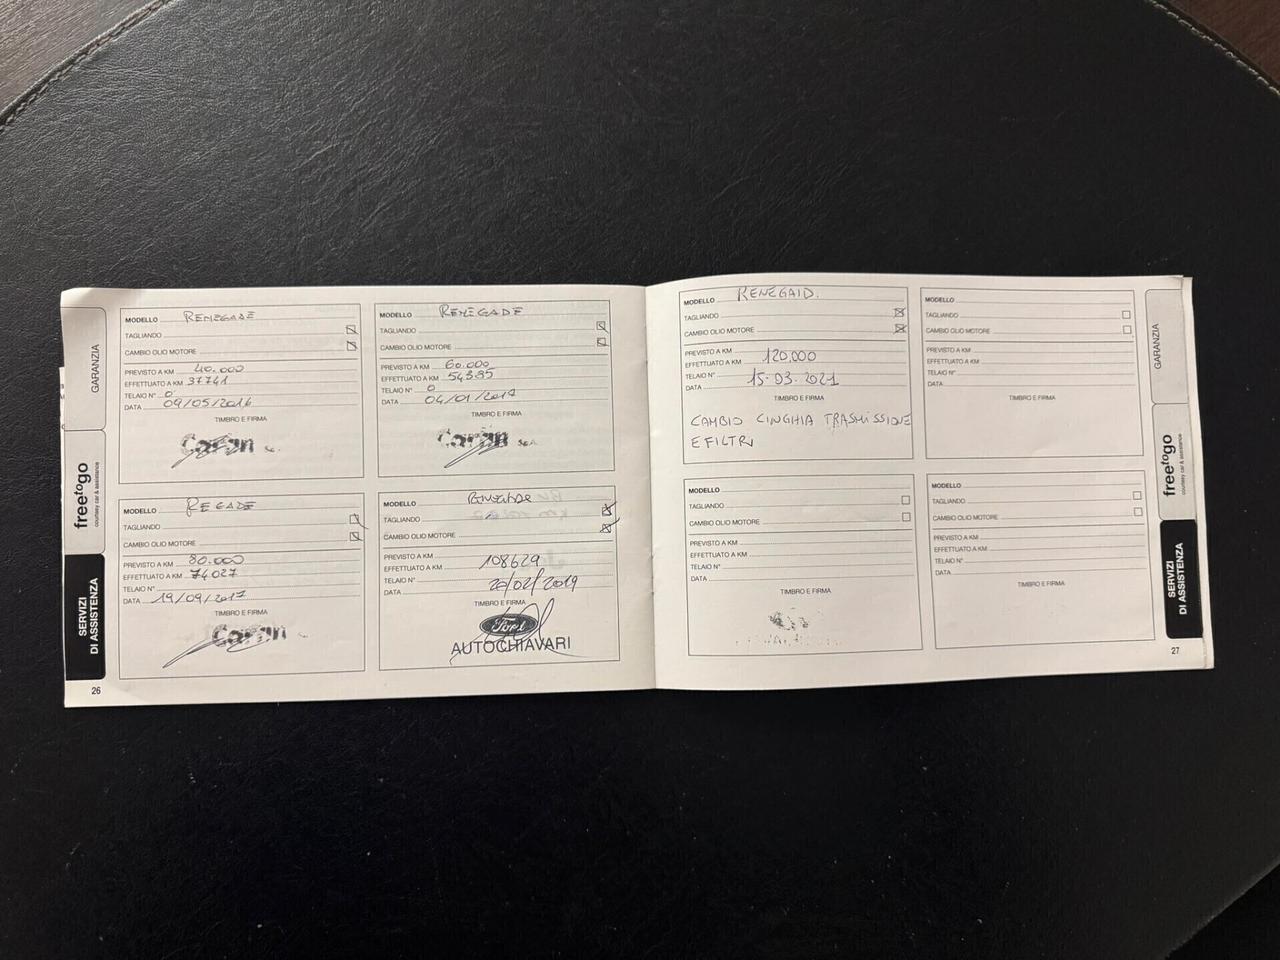 MODELLO RENEGADE
TAGLIANDO
CAMBIO OLIO MOTORE
PREVISTO A KM 40.000
EFFETTUATO A KM 37741
TELAIO N° 0
DATA 09/05/2016
TIMBRO E FIRMA
MODELLO RENEGADE
TAGLIANDO
CAMBIO OLIO MOTORE
PREVISTO A KM 60.000
EFFETTUATO A KM 54395
TELAIO N° 0
DATA 04/01/2017
TIMBRO E FIRMA
MODELLO REGADE
TAGLIANDO
CAMBIO OLIO MOTORE
PREVISTO A KM 80.000
EFFETTUATO A KM 74027
TELAIO N°
DATA 19/09/2017
TIMBRO E FIRMA
MODELLO RENEGADE
TAGLIANDO
CAMBIO OLIO MOTORE
PREVISTO A KM
EFFETTUATO A KM 108629
TELAIO N°
DATA 20/02/2019
TIMBRO E FIRMA
Ford
AUTOCHIAVARI
GARANZIA
freetogo
courtesy car & assistance
SERVIZI
DI ASSISTENZA
26
MODELLO RENEGAID.
TAGLIANDO
CAMBIO OLIO MOTORE
PREVISTO A KM
EFFETTUATO A KM 120,000
TELAIO N°
DATA 15.03.2021
TIMBRO E FIRMA
CAMBIO CINGHIA TRASMISSIONE
E FILTRI
MODELLO
TAGLIANDO
CAMBIO OLIO MOTORE
PREVISTO A KM
EFFETTUATO A KM
TELAIO N°
DATA
TIMBRO E FIRMA
MODELLO
TAGLIANDO
CAMBIO OLIO MOTORE
PREVISTO A KM
EFFETTUATO A KM
TELAIO N°
DATA
TIMBRO E FIRMA
MODELLO
TAGLIANDO
CAMBIO OLIO MOTORE
PREVISTO A KM
EFFETTUATO A KM
TELAIO N°
DATA
TIMBRO E FIRMA
GARANZIA
freetogo
courtesy car & assistance
SERVIZI
DI ASSISTENZA
27